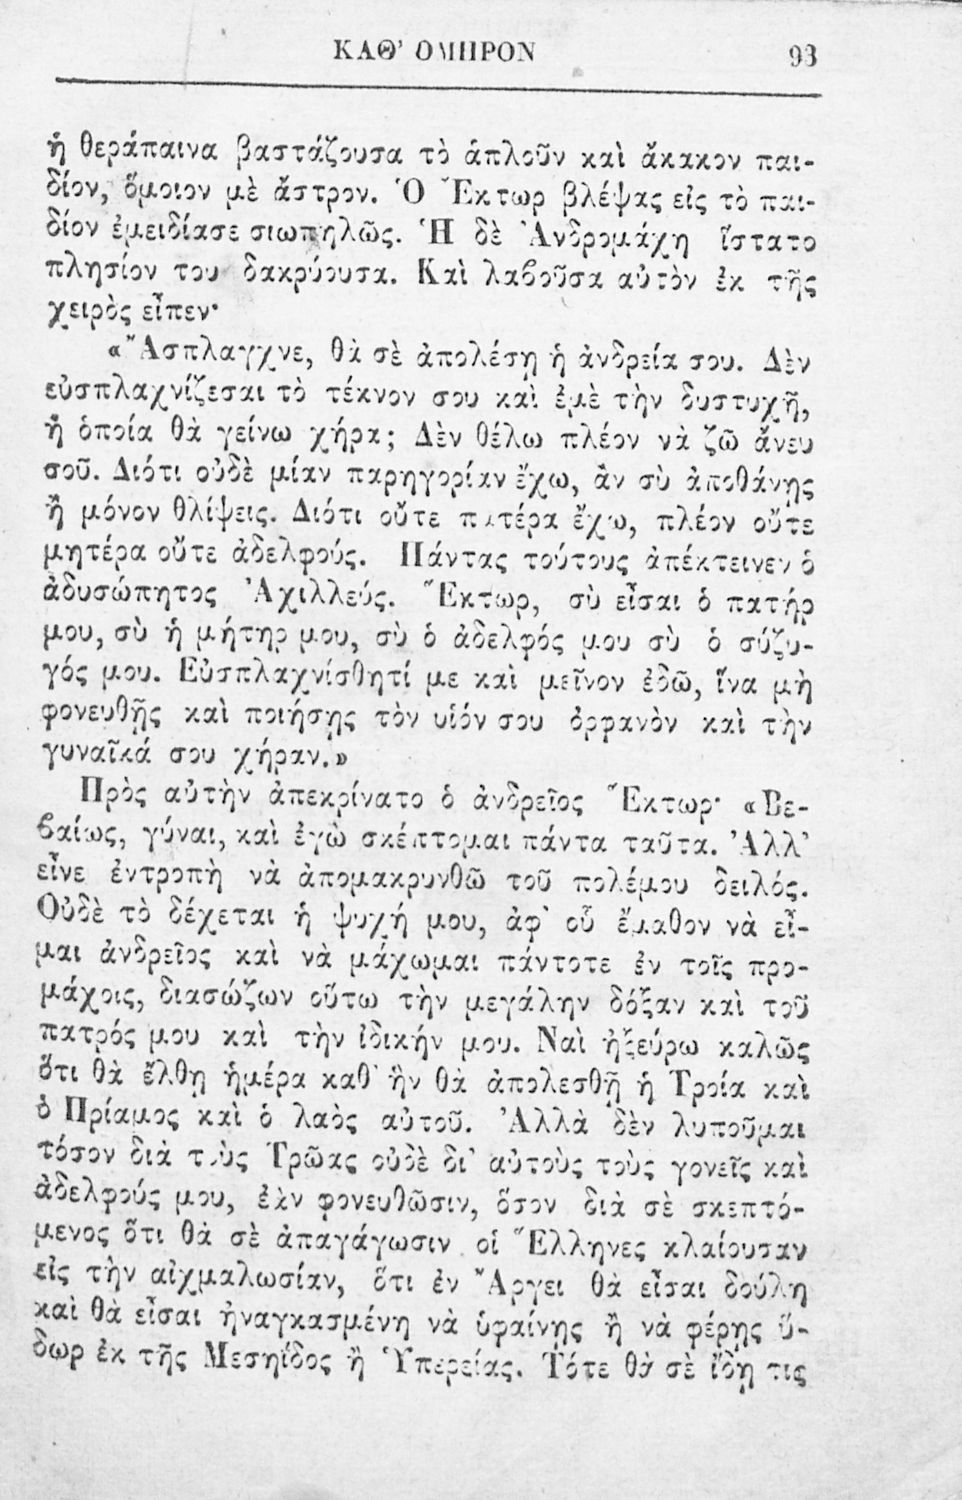 ΚΑΘ' ΟΜΗΡΟΝ 93
ἡ θεράπαινα βαστάζουσα τὸ ἁπλοῦν καὶ ἄκακον παι-
δίον, ὅμοιον μὲ ἄστρον. Ὁ Ἕκτωρ βλέψας εἰς τὸ παι-
δίον ἐμειδίασε σιωπηλῶς. Ἡ δὲ Ἀνδρομάχη ἵστατο
πλησίον του δακρύουσα. Καὶ λαβοῦσα αὐτὸν ἐκ τῆς
χειρὸς εἶπεν·
«Ἄσπλαγχνε, θὰ σὲ ἀπολέσῃ ἡ ἀνδρεία σου. Δὲν
εὐσπλαχνίζεσαι τὸ τέκνον σου καὶ ἐμὲ τὴν δυστυχῆ,
ἡ ὁποία θὰ γείνω χήρα; Δὲν θέλω πλέον νὰ ζῶ ἄνευ
σοῦ. Διότι οὐδὲ μίαν παρηγορίαν ἔχω, ἂν σὺ ἀποθάνῃς
ἢ μόνον θλίψεις. Διότι οὔτε πατέρα ἔχω, πλέον οὔτε
μητέρα οὔτε ἀδελφούς. Πάντας τούτους ἀπέκτεινεν ὁ
ἀδυσώπητος Ἀχιλλεύς. Ἕκτωρ, σὺ εἶσαι ὁ πατήρ
μου, σὺ ἡ μήτηρ μου, σὺ ὁ ἀδελφός μου σὺ ὁ σύζυ-
γός μου. Εὐσπλαχνίσθητί με καὶ μεῖνον ἐδῶ, ἵνα μὴ
φονευθῇς καὶ ποιήσῃς τὸν υἱόν σου ὀρφανὸν καὶ τὴν
γυναῖκά σου χήραν.»
Πρὸς αὐτὴν ἀπεκρίνατο ὁ ἀνδρεῖος Ἕκτωρ· «Βε-
βαίως, γύναι, καὶ ἐγὼ σκέπτομαι πάντα ταῦτα. Ἀλλ'
εἶνε ἐντροπὴ νὰ ἀπομακρυνθῶ τοῦ πολέμου δειλός.
Οὐδὲ τὸ δέχεται ἡ ψυχή μου, ἀφ' οὗ ἔμαθον νὰ εἶ-
μαι ἀνδρεῖος καὶ νὰ μάχωμαι πάντοτε ἐν τοῖς προ-
μάχοις, διασώζων οὕτω τὴν μεγάλην δόξαν καὶ τοῦ
πατρός μου καὶ τὴν ἰδικήν μου. Ναὶ ἠξεύρω καλῶς
ὅτι θὰ ἔλθῃ ἡμέρα καθ' ἣν θὰ ἀπολεσθῇ ἡ Τροία καὶ
ὁ Πρίαμος καὶ ὁ λαὸς αὐτοῦ. Ἀλλὰ δὲν λυποῦμαι
τόσον διὰ τοὺς Τρῶας οὐδὲ δι' αὐτοὺς τοὺς γονεῖς καὶ
ἀδελφούς μου, ἐὰν φονευθῶσιν, ὅσον διὰ σὲ σκεπτό-
μενος ὅτι θὰ σὲ ἀπαγάγωσιν οἱ Ἕλληνες κλαίουσαν
εἰς τὴν αἰχμαλωσίαν, ὅτι ἐν Ἄργει θὰ εἶσαι δούλη
καὶ θὰ εἶσαι ἠναγκασμένη νὰ ὑφαίνῃς ἢ νὰ φέρῃς ὕ-
δωρ ἐκ τῆς Μεσηΐδος ἢ Ὑπερείας. Τότε θὰ σὲ ἴδῃ τις